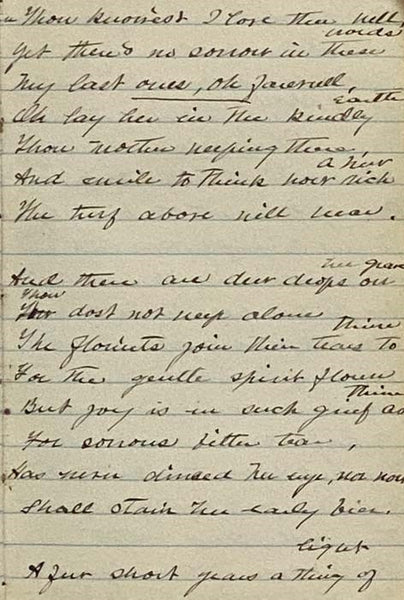 Thou knowest I love thee well,
words
yet there's no sorrow in these
my last ones, oh farewell,
Earth
Oh lay her in the kindly
Thou mother weeping there,
a
And smile to think how rich
The turf above will wear.
her grave
And there are dew drops on
Thou
dost not weep alone
thine
The flow'rets join their tears to
For the gentle spirit flown
thine
But joy is in such grief as
For sorrows bitter tear,
Has never dimed her eye, nor now
Shall stain her early bier.
light
A few short years a thing of